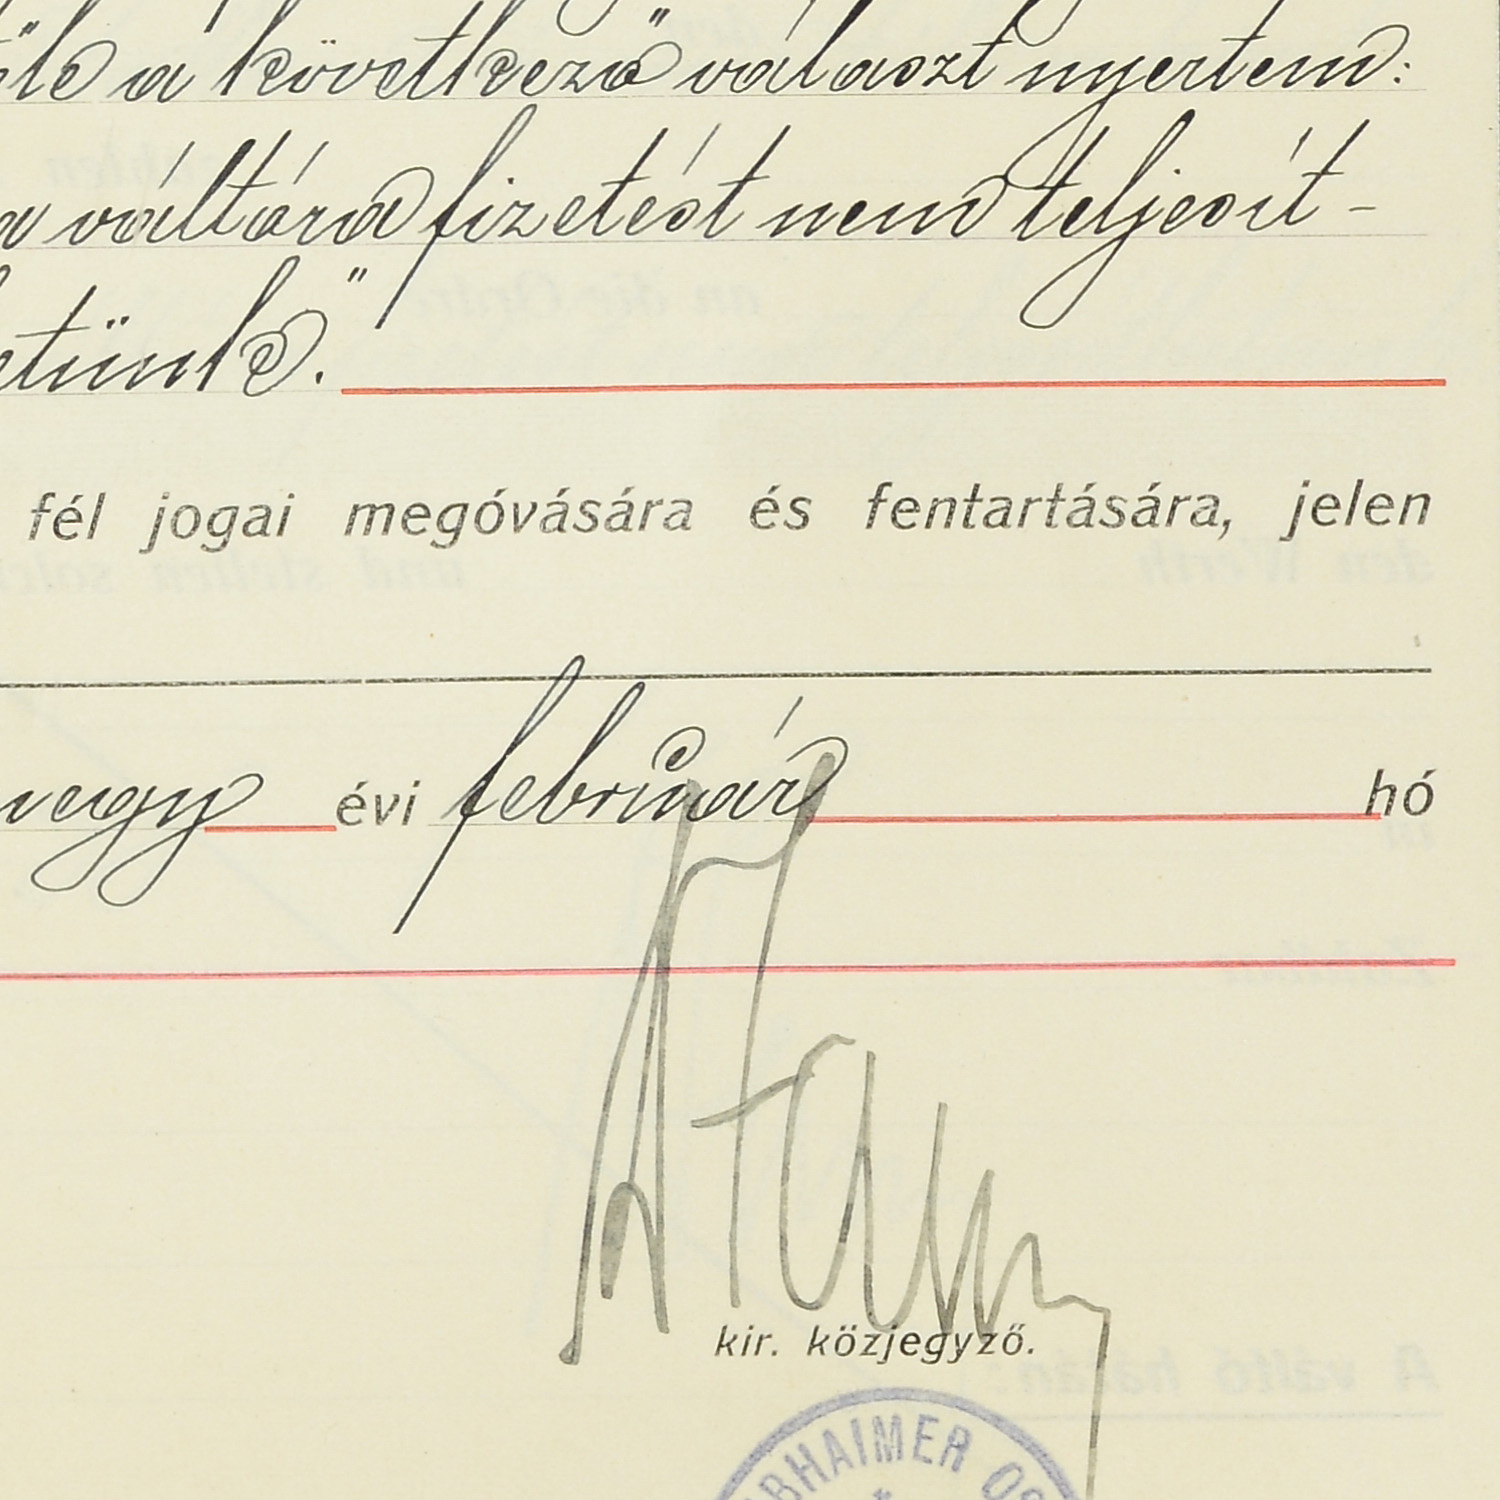 a következő választ nyertem:
a váltóra fizetést nem teljesít-
etünk."
fél jogai megóvására és fentartására, jelen
négy évi február hó
kir. közjegyző.
BHAIMER OS